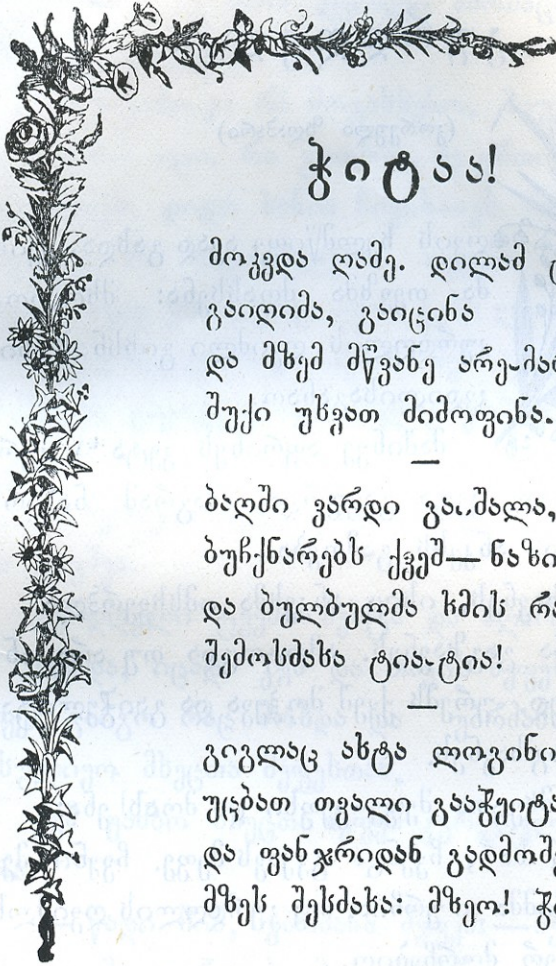 ჭიტაა!
მოკვდა ღამე. დილამ
გაიღიმა, გაიცინა
და მზემ მწვანე არე-მა
შუქი უხვათ მიმოფინა.
—
ბაღში ვარდი გაიშალა,
ბუჩქნარებს ქვეშ — ნაზი
და ბულბულმა ხმის
შემოსძახა ტია-ტია!
—
გიგლაც ახტა
უცბათ თვალი
და ფანჯრიდან
მზეს შესძახა: მზეო!